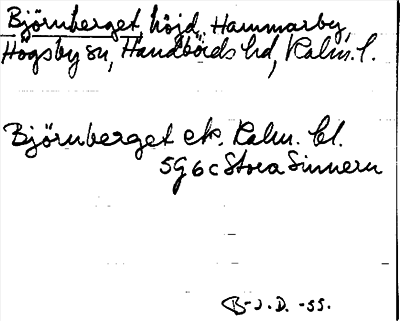 Björnberget, höjd, Hammarby,
Högsby sn, Handbörds hd, Kalm. l.
Björnberget ek. Kalm. bl.
5G 6c Stora Sinnern
B-J.D. -55.